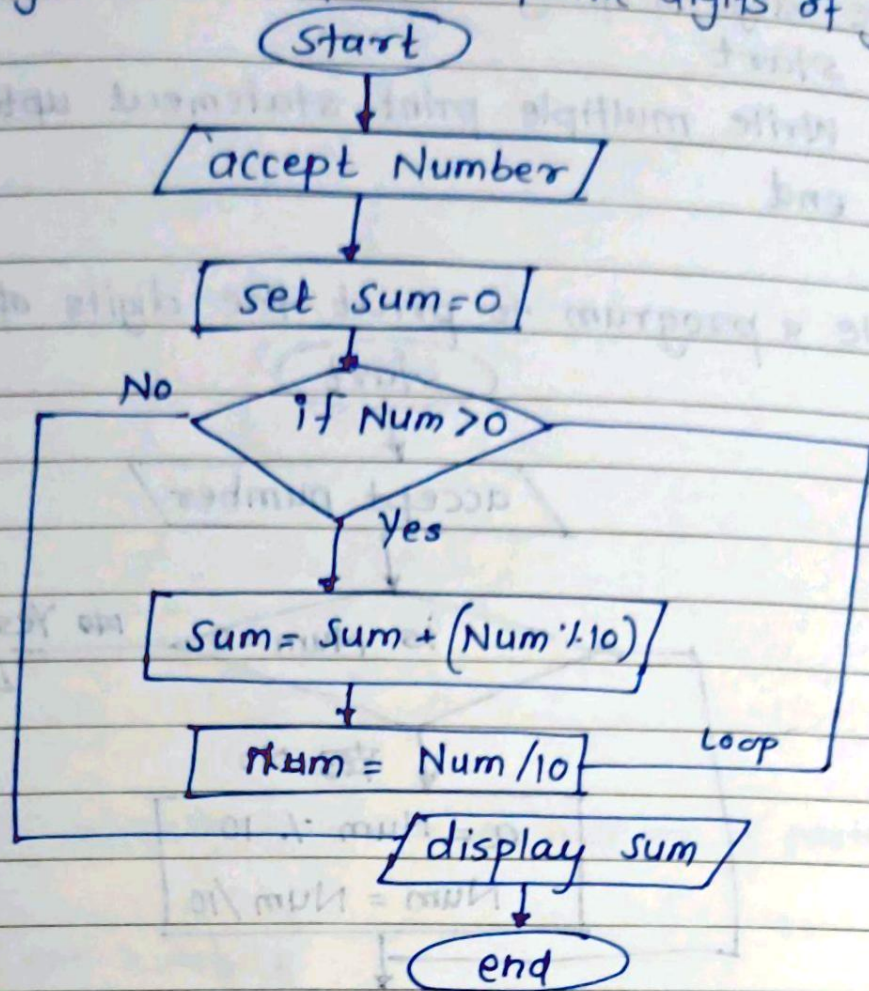 digits of
start
accept Number
set sum=0
No
if Num >0
Yes
Sum = Sum + (Num % 10)
Num = Num /10
Loop
display sum
end